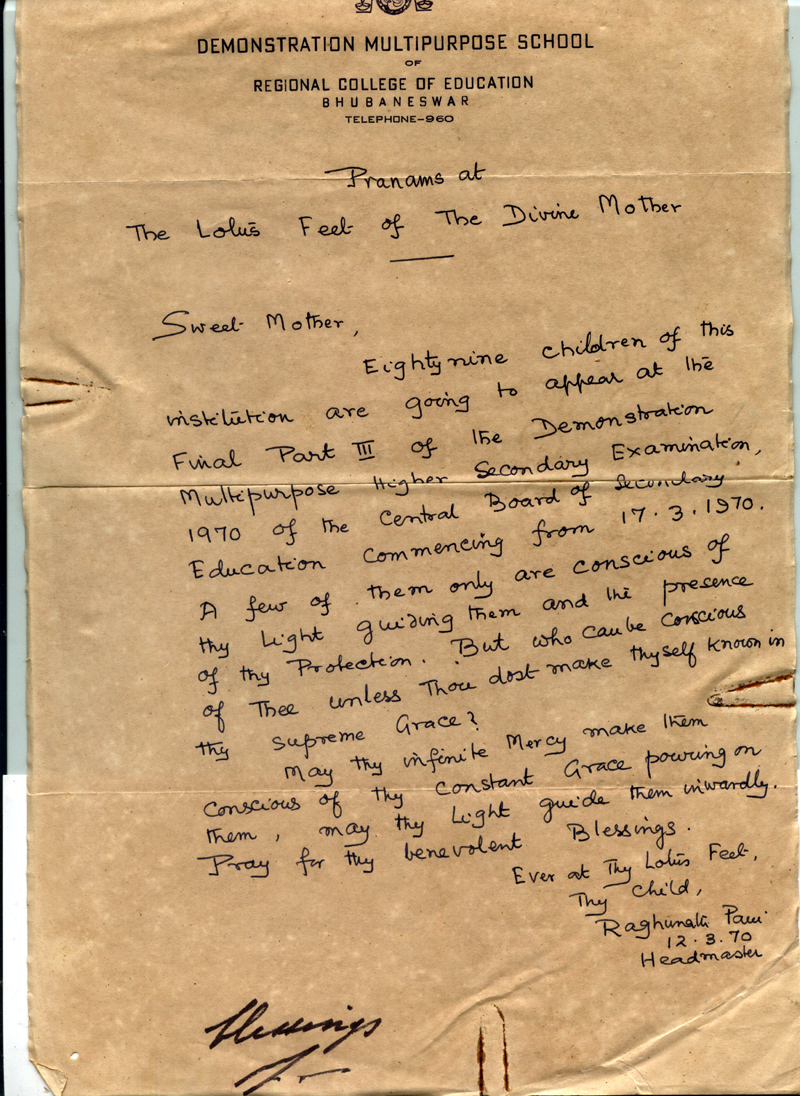 DEMONSTRATION MULTIPURPOSE SCHOOL
OF
REGIONAL COLLEGE OF EDUCATION
BHUBANESWAR
TELEPHONE-960
Pranams at
The Lotus Feet of The Divine Mother
Sweet Mother,
Eighty nine children of this
institution are going to appear at the
Final Part III of the Demonstration
Multipurpose Higher Secondary Examination,
1970 of the Central Board of Secondary
Education commencing from 17.3.1970.
A few of them only are conscious of
thy Light guiding them and the presence
of thy Protection. But who can be conscious
of Thee unless Thou dost make thyself known in
thy supreme Grace?
May thy infinite Mercy make them
conscious of thy constant Grace pouring on
them, may thy Light guide them inwardly.
Pray for thy benevolent Blessings.
Ever at Thy Lotus Feet,
Thy Child,
Raghunath Pani
12.3.70
Headmaster
blessings